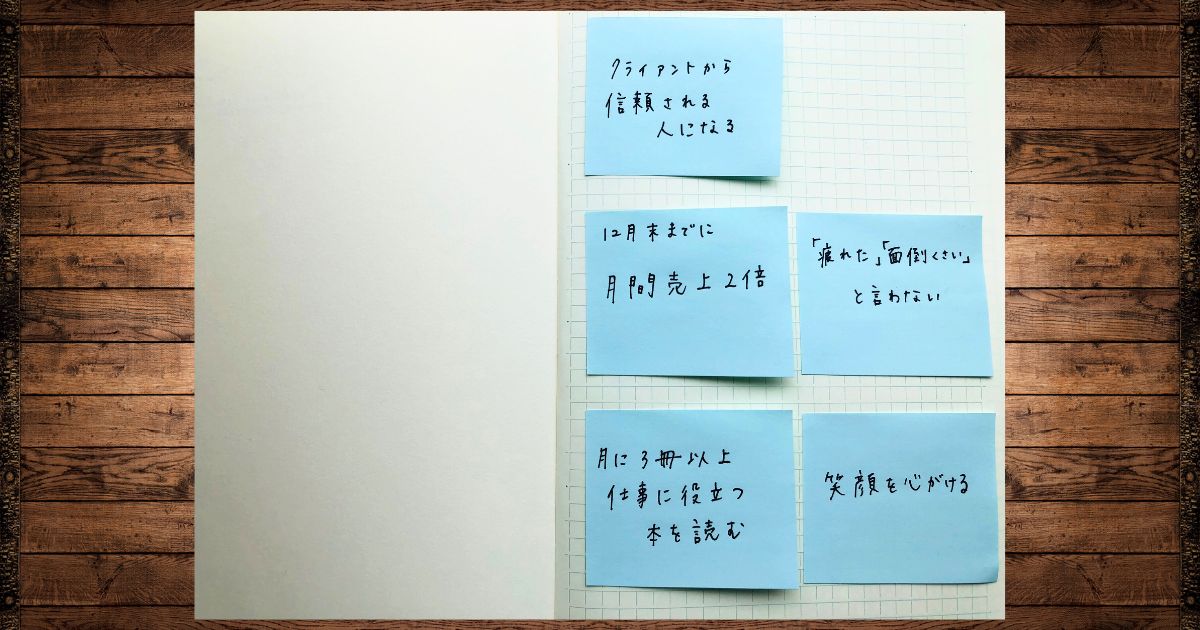 クライアントから
信頼される
人になる
12月末までに
月間売上2倍
「疲れた」「面倒くさい」
と言わない
月に3冊以上
仕事に役立つ
本を読む
笑顔を心がける